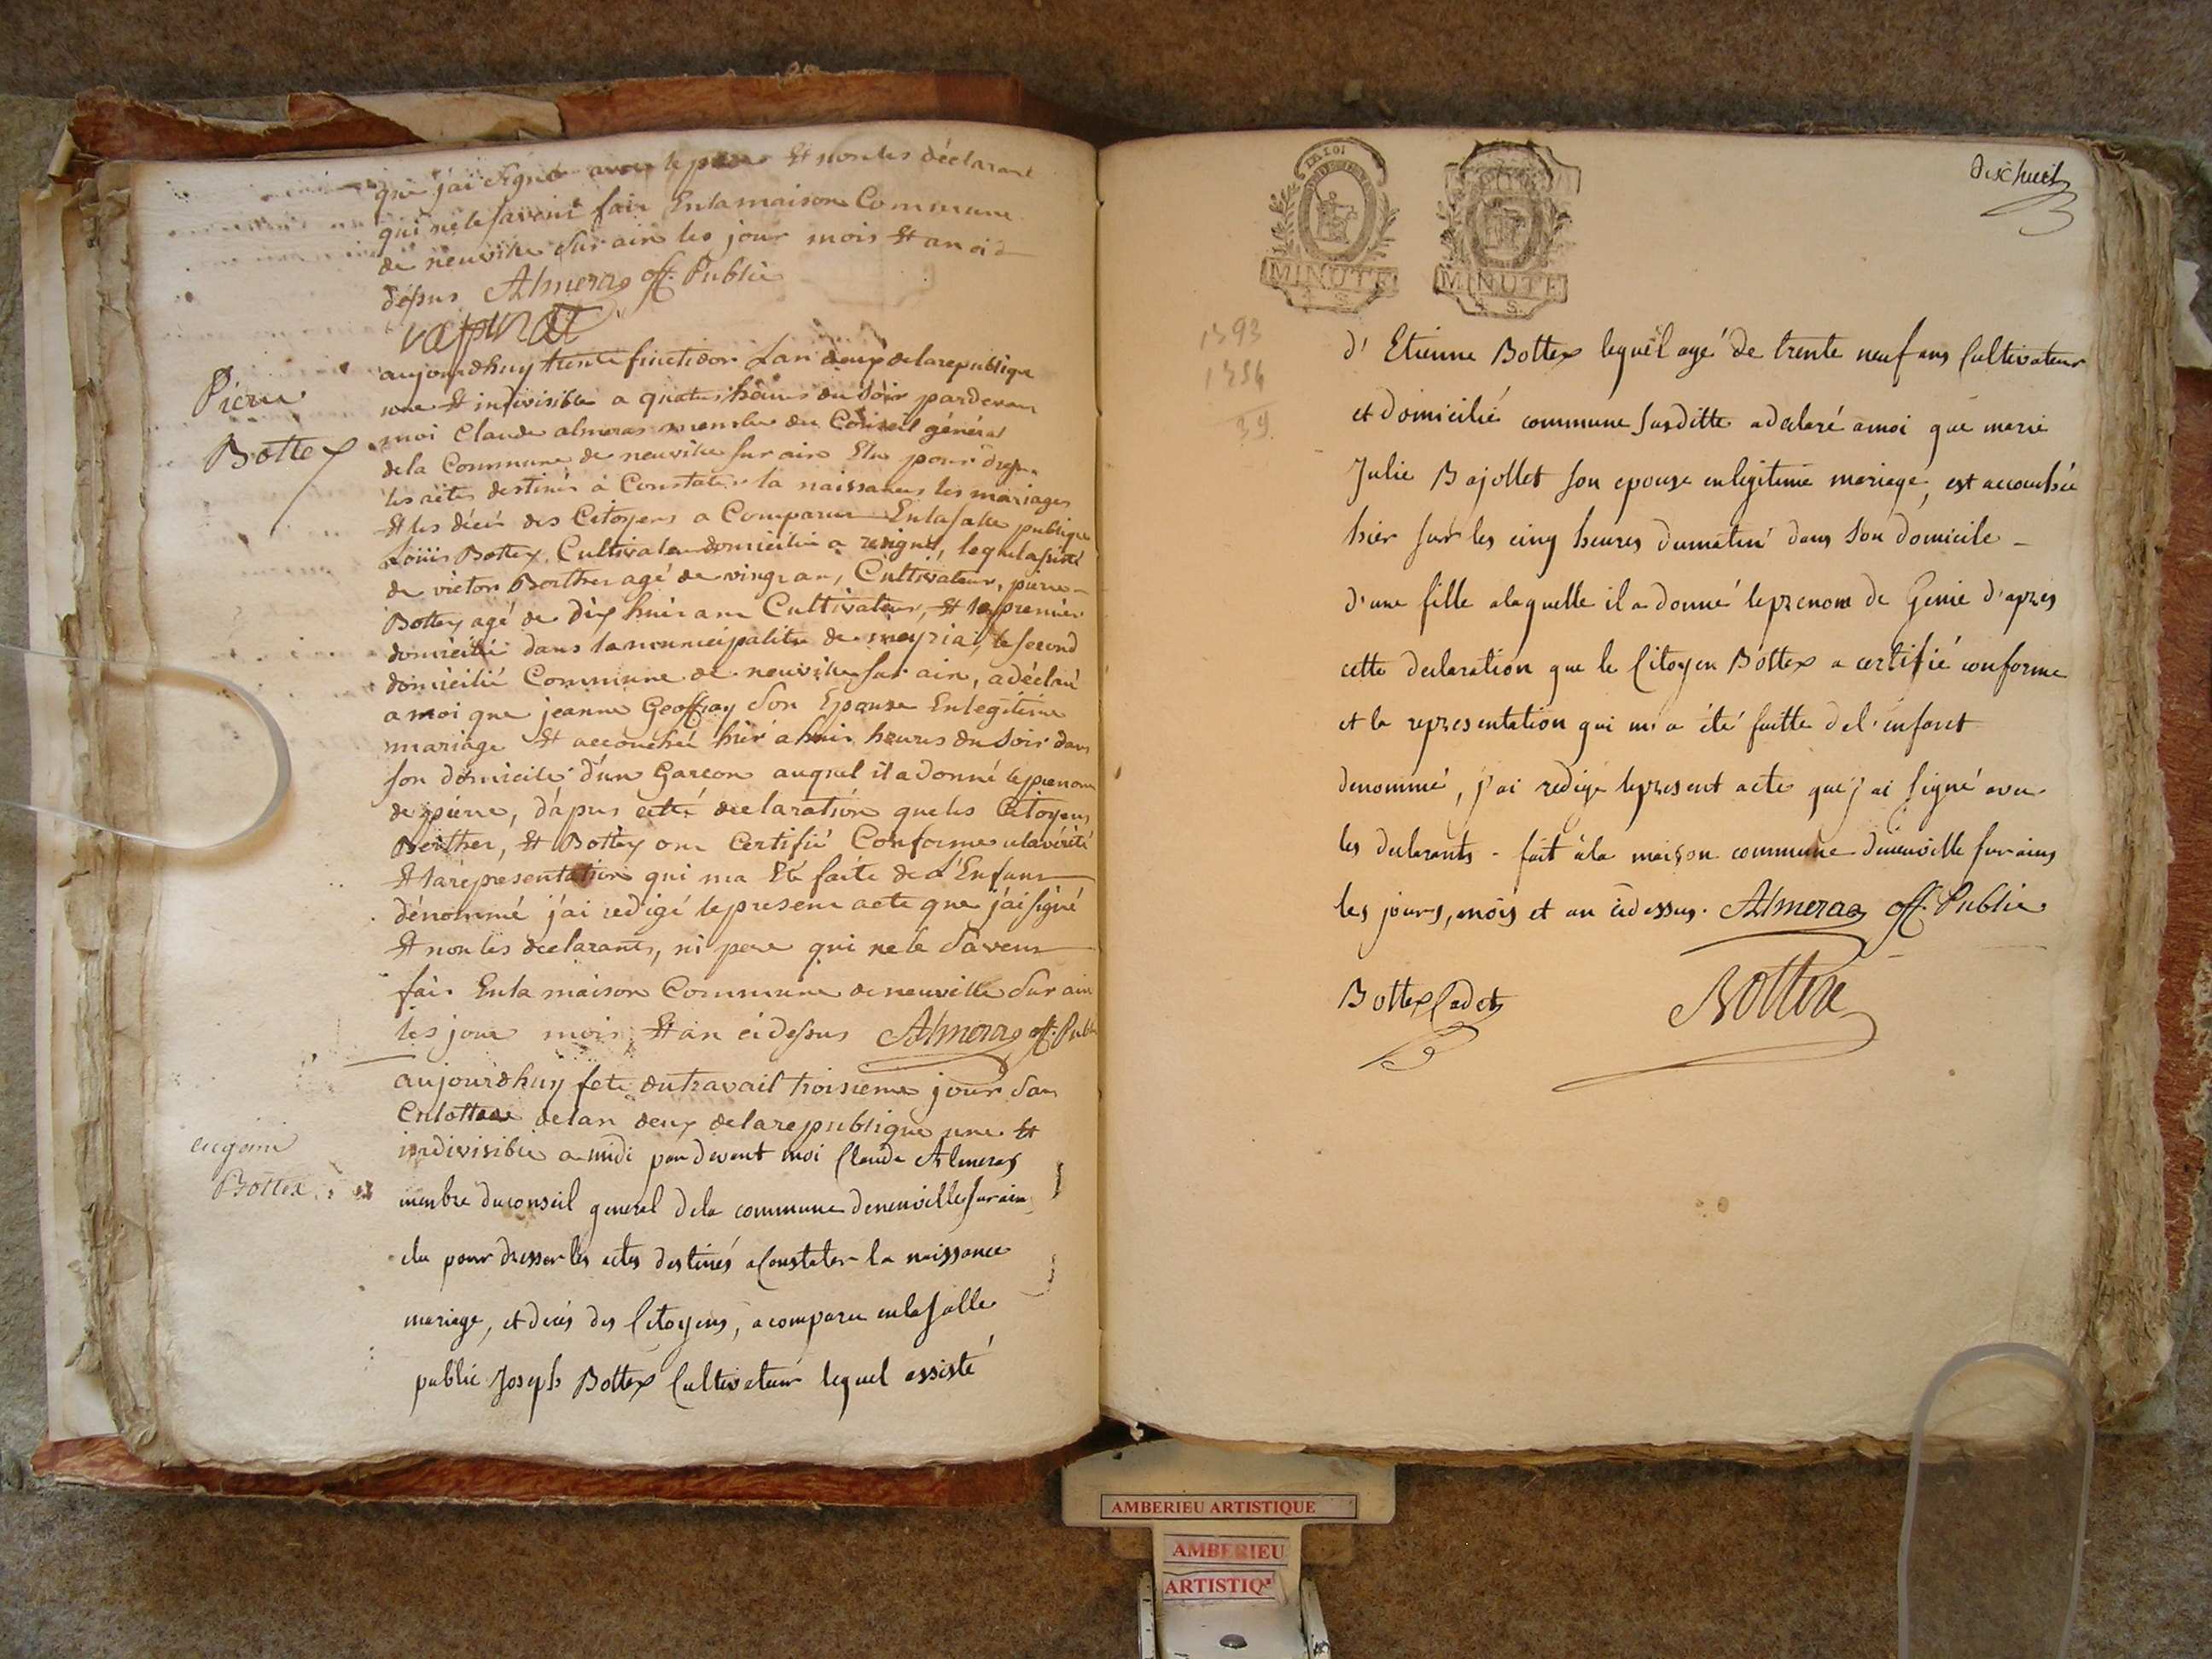 que j'ai signé avec le pere Et non les déclarant
qui ne le savent fair Enla maison Commune
de neuville sur ain les jour mois Et an ci
déssus Almeras off. Public
Pierre
Bottex
aujourdhuy trente fructidor Lan deux delarepublique
une Et indivisible a quatre heures du Soir pardevan
moi Claude almeras membre du Conseil général
dela Commune de neuville sur ain Elu pour dresse
les actes destinés à Constater la naissances les mariages
Et les décé des Citoyens a Comparu Enlasalle publique
Loüis Bottex Cultivateur domicilié a resignel, lequelassisté
de victor Borthier agé de vingt an, Cultivateur, pierre
Bottex agé de Dix huit ans Cultivateur, Et le premier
domicilié dans lamunicipalité de meyria, le second
domicilié Commune de neuville sur ain, adéclaré
a moi que jeanne Geoffray Son Epouse Enlegitime
mariage Et accouchéé hier a huit heures du Soir dans
son domicile d'un Garcon auquel il a donné leprenom
de piérre, dápres cette declaration queles Citoyens
Berthier, Et Bottex ont Certifié Conforme alavérité
Et lareprésentation qui ma Eté faite de l'Enfant
dénommé j'ai redigé lepresent acte que j'ai signé
Et non les declarants, ni pere qui ne le Savent
fait Enla maison Commune deneuville Sur ain
les jour mois Et an cidessus Almeras off. Publ
eugenie
Bottex
aujourdhuy fete dutravail troisieme jour San
Culottide delan deux delarepublique une Et
indivisible a midi par devent moi Claude Almeras
menbre duconseil general dela commune deneuville surain
elu pour dresser les actes destinés aConstater la naissance
mariage, et decés des Citoyens, acomparu enlasalle
public Joseph Bottex Cultivateur lequel assisté
LA LOI
MINUTE
MINUTE
dixhuit
1393
1354
39
d' Etienne Bottex lequel agé de trente neuf ans Cultivateur
et domicilié commune susditte adeclaré amoi que marie
Julie Bajollet son epouse enlegitime mariage, est accouchée
hier sur les cinq heures dumatin dans son domicile -
d'une fille alaquelle il a donné leprenom de Genie d'apres
cette declaration que le Citoyen Bottex a certifié conforme
et la representation qui m'a été faitte del'enfant
denommé, j'ai redigé lepresent acte que j'ai signé avec
les declarants - fait àla maison commune deneuville sur ains
les jours, mois et an cidessus. Almeras off. Public
Bottex Cadet Bottex
AMBERIEU ARTISTIQUE
AMBERIEU
ARTISTIQ